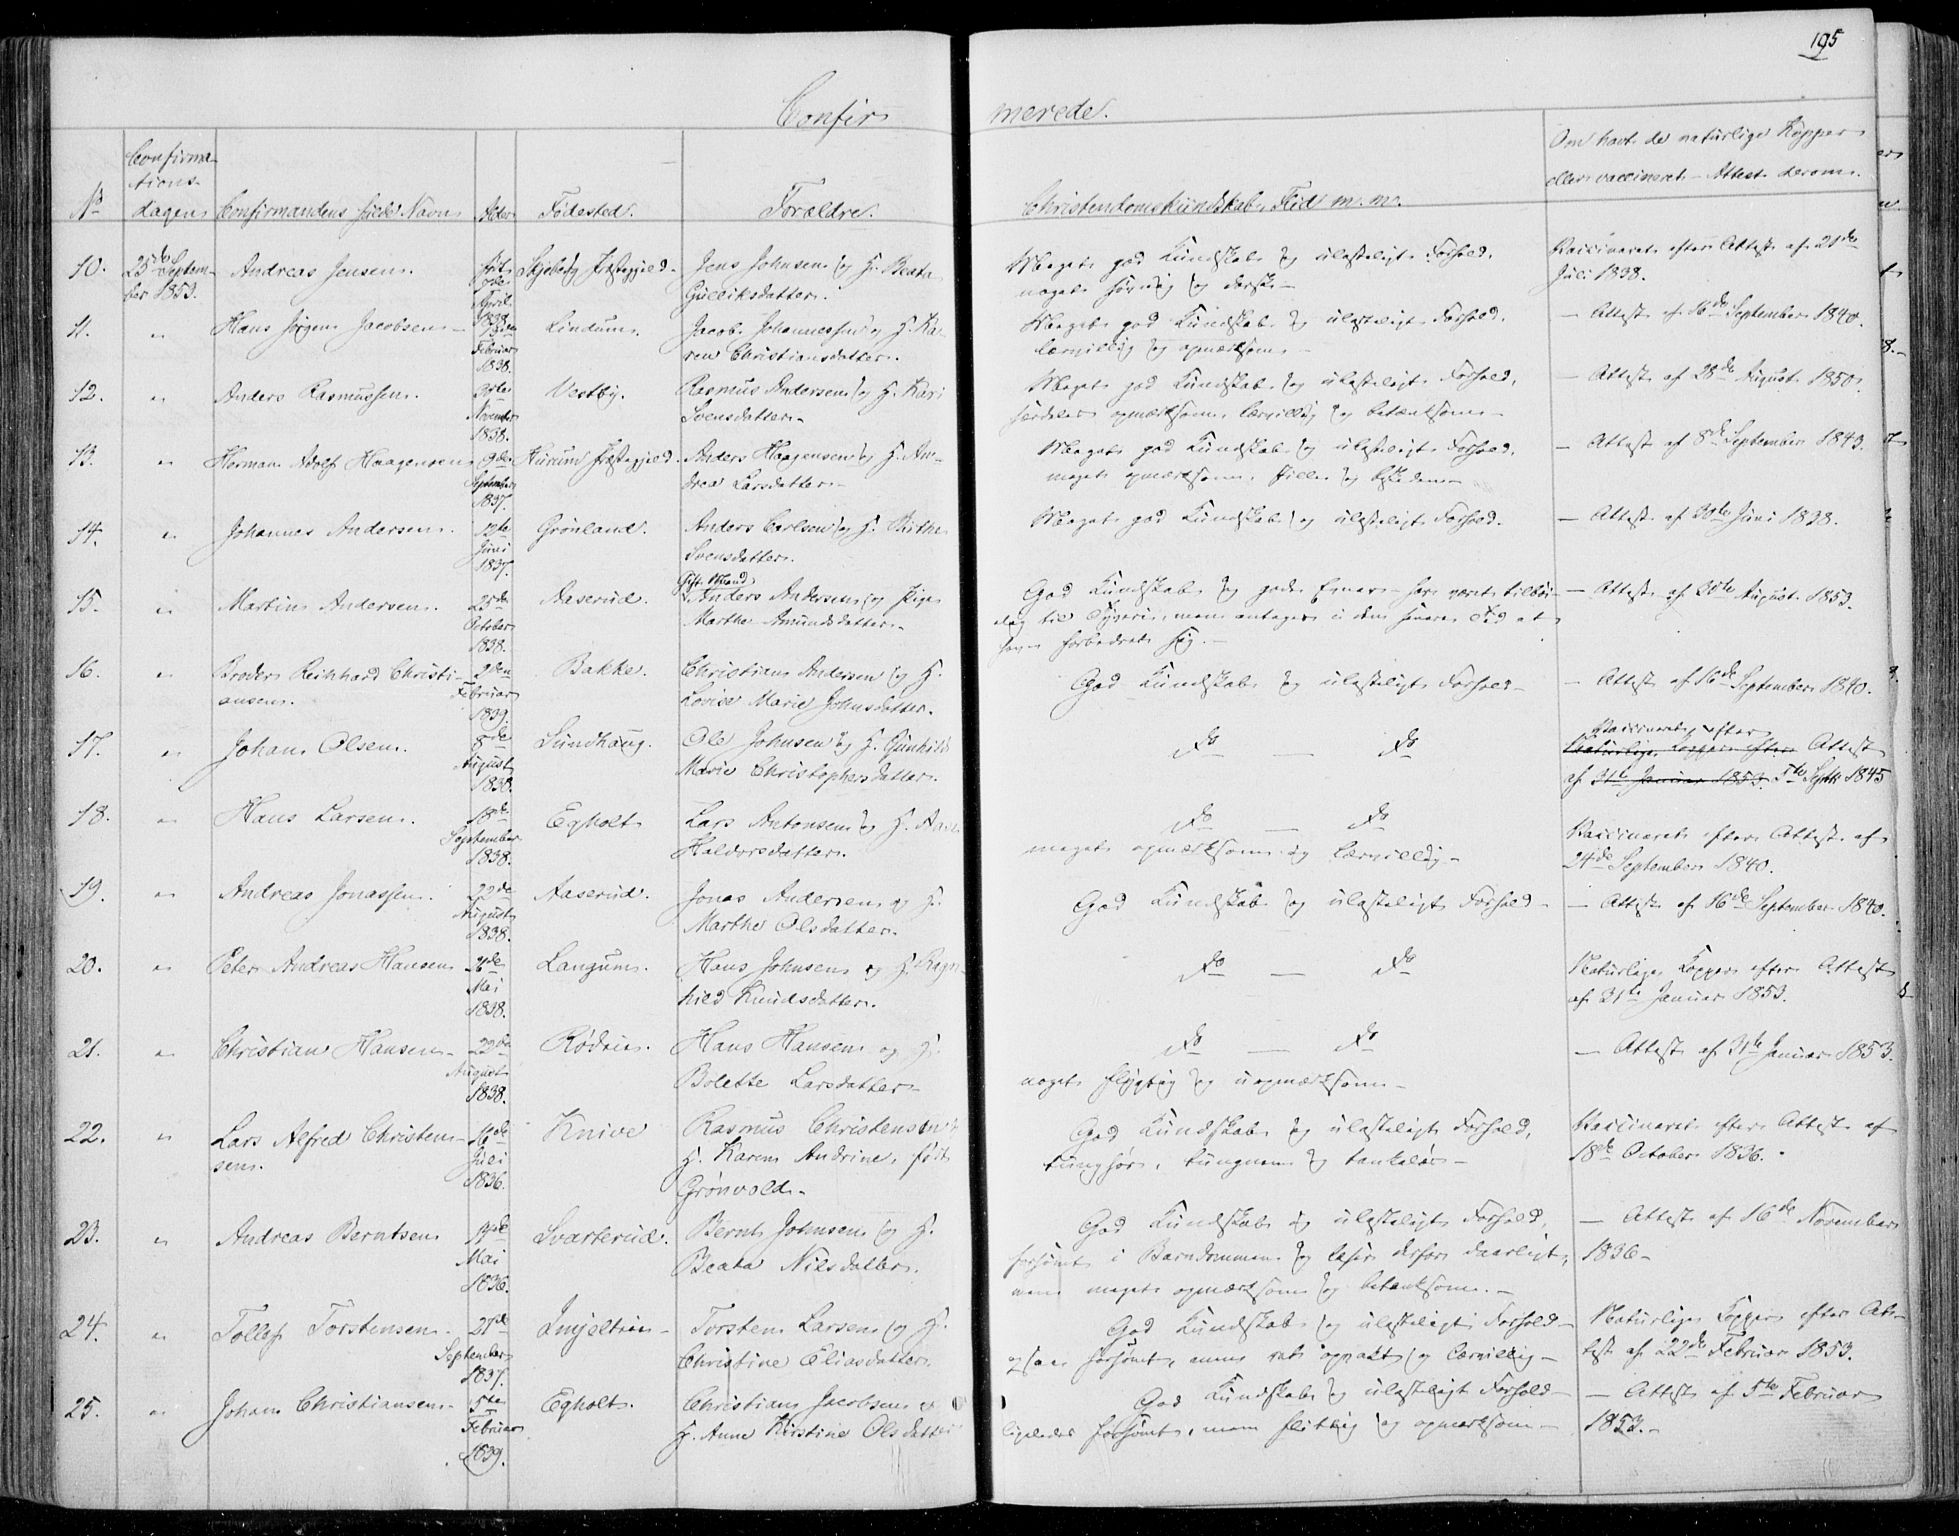 195
Confir
merede.
Confirma-
tions-
Om havt de naturlige Kopper
eller vaccineret - Attest derom.
No
dagen
Confirmandens fulde Navn
Alder
Fødested.
Forældre.
Christendomskundskab, Flid m. m.
10.
25de Septem-
ber 1853.
Andreas Jensen.
født
April
1838.
Skjeberg Præstegjeld.
Jens Johnsen og H. Beata
Gulliksdatter.
Meget god Kundskab og ulasteligt Forhold,
noget
Vaccineret efter Attest af 21de
Juli 1838.
11.
"
Hans Jørgen Jacobsen
Februar
1838.
Lindum.
Jacob Johannessen og H. Ka-
ren Christiansdatter.
Meget god Kundskab og ulasteligt Forhold,
lærvillig og opmærksom
— Attest af 16de September 1840.
12.
"
Anders Rasmussen.
November
1838.
Vestby.
Rasmus Andersen og H. Kari
Svensdatter.
Meget god Kundskab og ulasteligt Forhold,
særdeles opmærksom, lærvillig og betænksom
— Attest af 28de August 1850.
13.
"
Herman Adolf Haagensen
9de
September
1837.
Hurum Præstegjeld.
Anders Haagensen og H. An-
drea Larsdatter
Meget god Kundskab og ulasteligt Forhold,
meget opmærksom, stille og beskeden
— Attest af 8de September 1843.
14.
"
Johannes Andersen.
12te
Juni
1837.
Grønland.
Anders Carlsen og H. Birthe
Svensdatter.
Meget god Kundskab og ulasteligt Forhold.
— Attest af 30te Juni 1838.
15.
"
Martin Andersen.
25de
October
1838.
Aaserud.
Gift Mand
Anders Andersen og Pige
Marthe Amundsdatter.
God Kundskab og gode Evner - har været tilbøi-
elig til Tyveri, men antages i den senere Tid at
have forbedret sig.
— Attest af 30te August 1853.
16.
"
Broder Reinhard Christi-
ansen.
2den
Februar
1839.
Bakke.
Christian Andersen og H.
Lovise Marie Johnsdatter.
God Kundskab og ulasteligt Forhold
— Attest af 16de September 1840.
17.
"
Johan Olsen.
8de
August
1838.
Sundhaug.
Ole Johnsen og H. Gunhild
Marie Christophersdatter.
Do — Do
Vaccineret efter
Naturlige Kopper efter Attest
af 31te Januar 1853. 5te Septbr 1845
18.
"
Hans Larsen.
18de
September
1838.
Egholt
Lars Antonsen og H. Anne
Haldorsdatter.
Do — Do
meget opmærksom og lærvillig
Vaccineret efter Attest af
24de September 1840.
19.
"
Andreas Jonassen.
22de
August
1838.
Aaserud.
Jonas Andersen og H.
Marthe Olsdatter.
God Kundskab og ulasteligt Forhold
— Attest af 16de September 1840.
20.
"
Peter Andreas Hansen
26de
Mai
1838.
Langum.
Hans Johnsen og H. Ragn
hild Knudsdatter.
Do — Do
Naturlige Kopper efter Attest
af 31te Januar 1853.
21.
"
Christian Hansen
22de
August
1838.
Hans Hansen og H.
Bolette Larsdatter
Do — Do
noget flygtig og uopmærksom
— Attest af 31te Januar 1853.
22.
"
Lars Alfred Christen-
sen.
16de
Juli
1836.
Knive
Rasmus Christensen
H. Karen Andrine, født
Grønvold.
God Kundskab og ulasteligt Forhold,
tunghør, tungnem og tankeløs
Vaccineret efter Attest af
18de October 1836.
23.
"
Andreas Berntsen
Mai
1836.
Svarterud.
Bernt Johnsen og H.
Beata Nilsdatter.
God Kundskab og ulasteligt Forhold,
forsømt i Barndommen og læser derfor daarligt,
men meget opmærksom og betænksom.
— Attest af 16de November
1836
24.
"
Tollef Torstensen.
21de
September
1837.
Torsten Larsen og H.
Christine Eliasdatter.
God Kundskab og ulasteligt Forhold
ogsaa forsømt, men ret opvakt og lærvillig
Naturlige Kopper efter At-
test af 22de Februar 1853.
25.
"
Johan Christiansen.
5te
Februar
1839.
Egholt.
Christian Jacobsen og
H. Anne Kirstine Olsdatter
God Kundskab og ulasteligt Forhold
ligeledes forsømt, men flittig og opmærksom
— Attest af 5te Februar
1853.